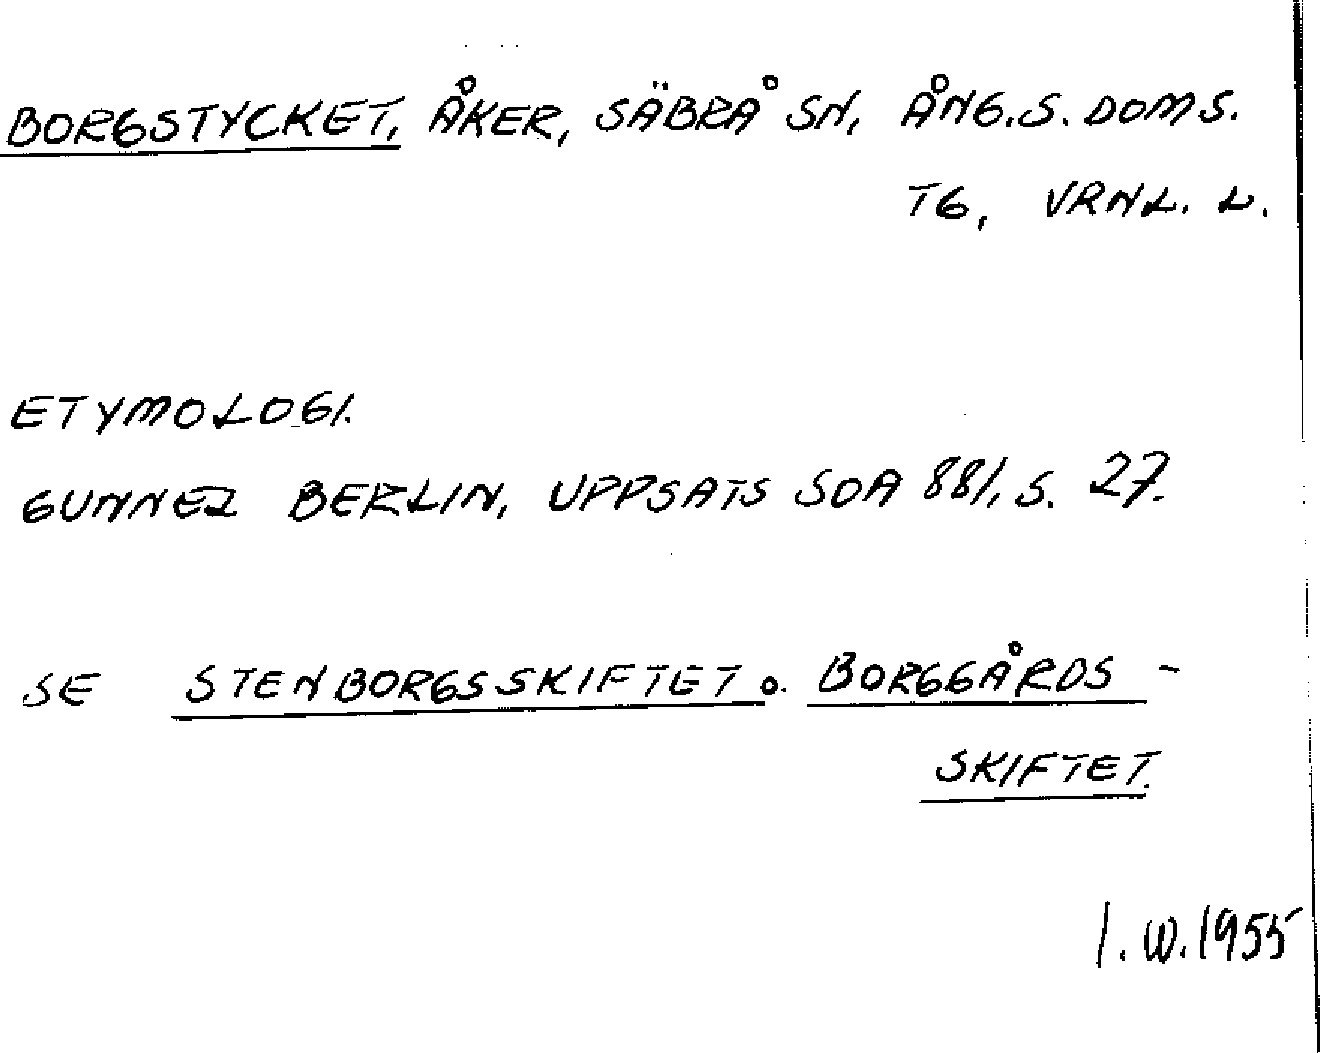 BORGSTYCKET, ÅKER, SÄBRÅ SN, ÅNG.S. DOMS.
TG, VRNL. L.
ETYMOLOGI.
GUNNEL BERLIN, UPPSATS SOA 881, S. 27.
SE STENBORGSSKIFTET o. BORGGÅRDS-
SKIFTET.
I.W. 1955